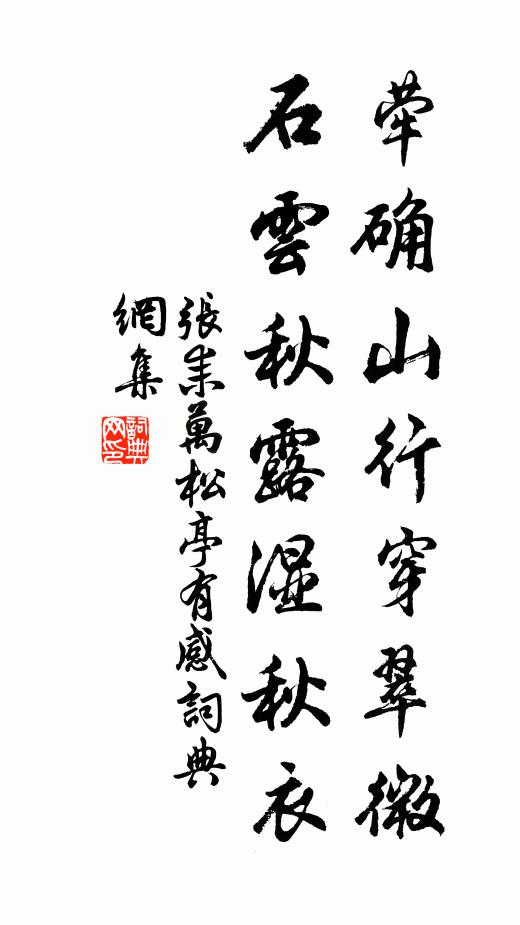 荦确山行穿翠微
石雲秋露湿秋衣
張耒萬松亭有感詞典
網集
詞典
网印